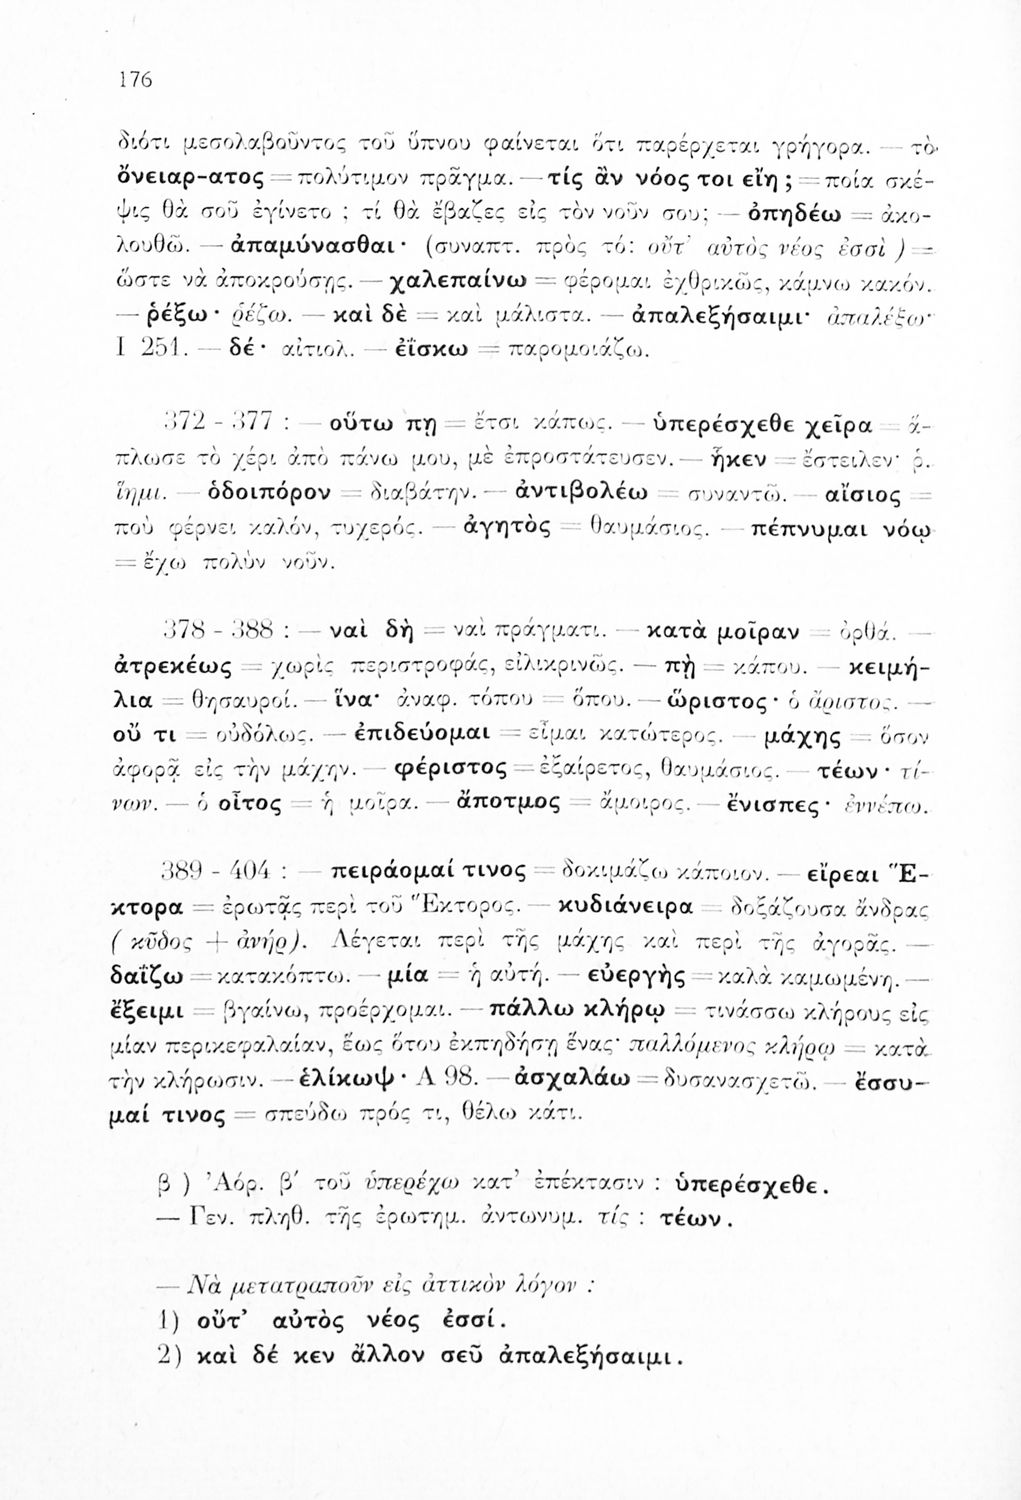 176
διότι μεσολαβοῦντος τοῦ ὕπνου φαίνεται ὅτι παρέρχεται γρήγορα. — τὸ
ὄνειαρ-ατος = πολύτιμον πρᾶγμα. — τίς ἂν νόος τοι εἴη ; = ποία σκέ-
ψις θὰ σοῦ ἐγίνετο ; τί θὰ ἔβαζες εἰς τὸν νοῦν σου; — ὀπηδέω = ἀκο-
λουθῶ. — ἀπαμύνασθαι · (συναπτ. πρὸς τό: οὔτ' αὐτὸς νέος ἐσσὶ ) =
ὥστε νὰ ἀποκρούσῃς. — χαλεπαίνω = φέρομαι ἐχθρικῶς, κάμνω κακόν.
— ῥέξω · ῥέζω. — καὶ δὲ = καὶ μάλιστα. — ἀπαλεξήσαιμι· ἀπαλέξω·
Ι 251. — δέ · αἰτιολ. — ἐΐσκω = παρομοιάζω.
372 - 377 : — οὕτω πῃ = ἔτσι κάπως. — ὑπερέσχεθε χεῖρα = ἅ-
πλωσε τὸ χέρι ἀπὸ πάνω μου, μὲ ἐπροστάτευσεν. — ἧκεν = ἔστειλεν· ῥ.
ἵημι. — ὁδοιπόρον = διαβάτην. — ἀντιβολέω = συναντῶ. — αἴσιος =
ποὺ φέρνει καλόν, τυχερός. — ἀγητὸς = θαυμάσιος. — πέπνυμαι νόῳ
= ἔχω πολὺν νοῦν.
378 - 388 : — ναὶ δὴ = ναὶ πράγματι. — κατὰ μοῖραν = ὀρθά. —
ἀτρεκέως = χωρὶς περιστροφάς, εἰλικρινῶς. — πὴ = κάπου. — κειμή-
λια = θησαυροί. — ἵνα· ἀναφ. τόπου = ὅπου. — ὤριστος · ὁ ἄριστος. —
οὔ τι = οὐδόλως. — ἐπιδεύομαι = εἶμαι κατώτερος. — μάχης = ὅσον
ἀφορᾷ εἰς τὴν μάχην. — φέριστος = ἐξαίρετος, θαυμάσιος. — τέων · τί-
νων. — ὁ οἶτος = ἡ μοῖρα. — ἄποτμος = ἄμοιρος. — ἔνισπες · ἐννέπω.
389 - 404 : — πειράομαί τινος = δοκιμάζω κάποιον. — εἴρεαι Ἕ-
κτορα = ἐρωτᾷς περὶ τοῦ Ἕκτορος. — κυδιάνειρα = δοξάζουσα ἄνδρας
( κῦδος + ἀνήρ). Λέγεται περὶ τῆς μάχης καὶ περὶ τῆς ἀγορᾶς. —
δαΐζω = κατακόπτω. — μία = ἡ αὐτή. — εὐεργὴς = καλὰ καμωμένη. —
ἔξειμι = βγαίνω, προέρχομαι. — πάλλω κλήρῳ = τινάσσω κλήρους εἰς
μίαν περικεφαλαίαν, ἕως ὅτου ἐκπηδήσῃ ἕνας· παλλόμενος κλήρῳ = κατὰ
τὴν κλήρωσιν. — ἑλίκωψ · Α 98. — ἀσχαλάω = δυσανασχετῶ. — ἔσσυ-
μαί τινος = σπεύδω πρός τι, θέλω κάτι.
β ) Ἀόρ. β' τοῦ ὑπερέχω κατ' ἐπέκτασιν : ὑπερέσχεθε.
— Γεν. πληθ. τῆς ἐρωτημ. ἀντωνυμ. τίς : τέων.
— Νὰ μετατραποῦν εἰς ἀττικὸν λόγον :
1) οὔτ' αὐτὸς νέος ἐσσί.
2) καὶ δέ κεν ἄλλον σεῦ ἀπαλεξήσαιμι.